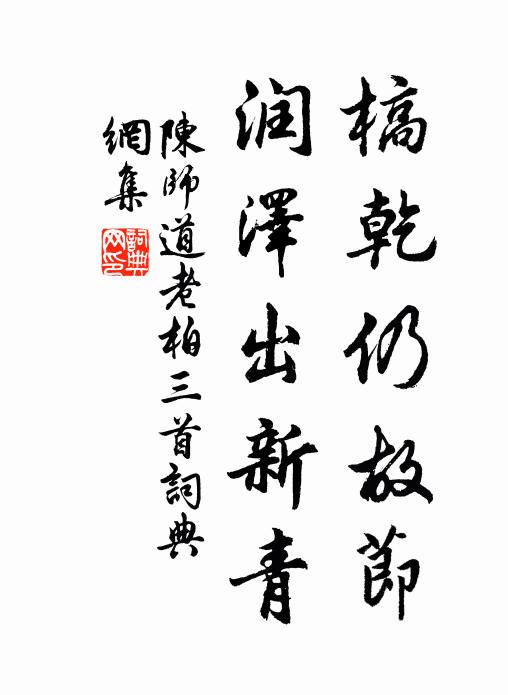 槁乾仍故節
润澤出新青
陳師道老柏三首詞典
網集
詞典網印